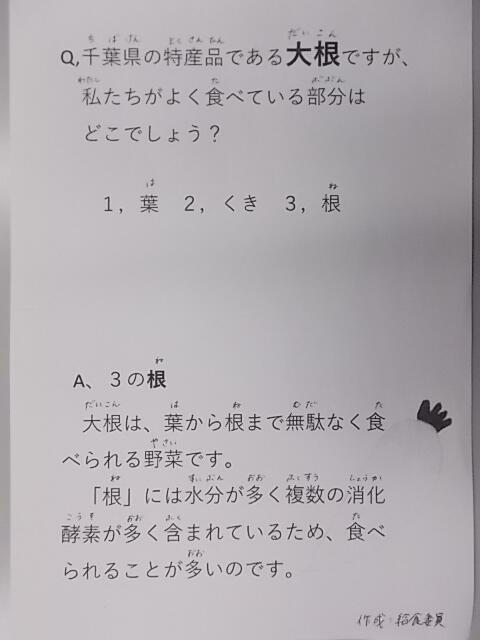 Q,千葉県の特産品である大根ですが、
私たちがよく食べている部分は
どこでしょう？
1，葉　2，くき　3，根
A、3の根
大根は、葉から根まで無駄なく食
べられる野菜です。
「根」には水分が多く複数の消化
酵素が多く含まれているため、食べ
られることが多いのです。
作成：給食委員